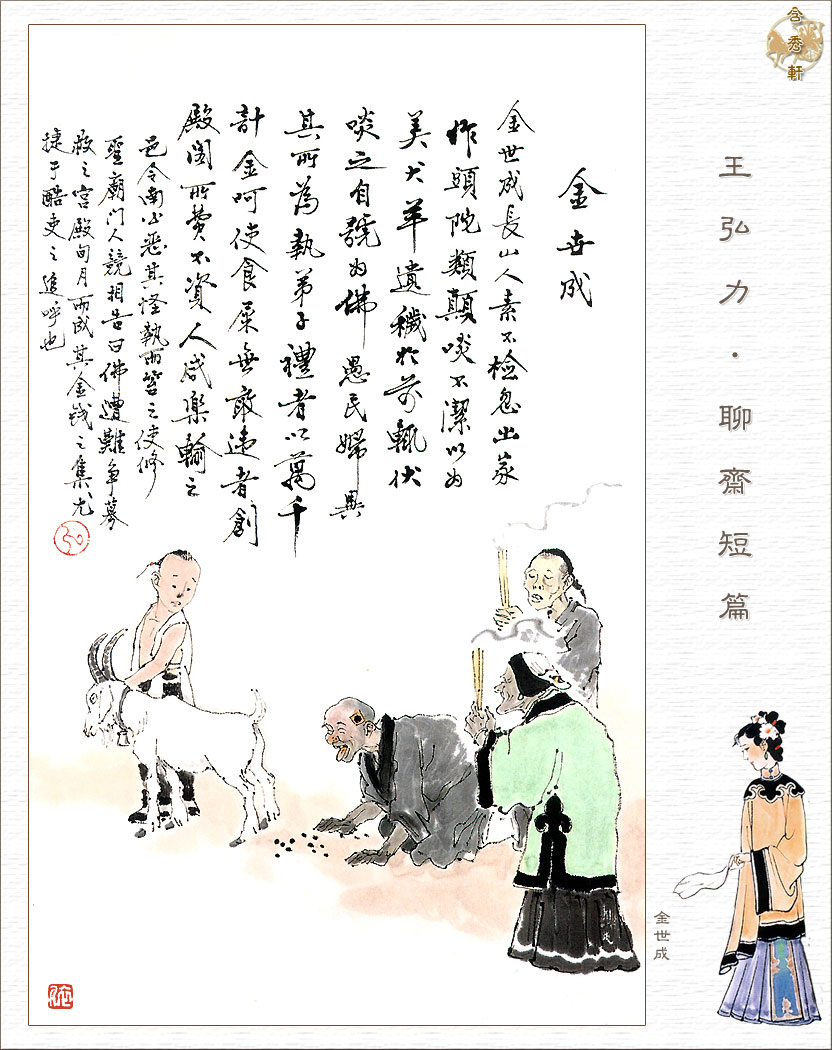 含秀軒
王弘力·聊齋短篇
金世成
金世成長山人素不檢忽出家
作頭陀類顛啖不潔以为
美犬羊遺穢於前輒伏
啖之自號为佛愚民婦異
其所為執弟子禮者以萬千
計金呵使食屎無敢違者創
殿阁所費不資人咸樂輸之
邑令南公惡其怪執而笞之使修
聖廟门人競相告曰佛遭難争募
救之宮殿旬月而成其金钱之集尤
捷于酷吏之追呼也
金世成